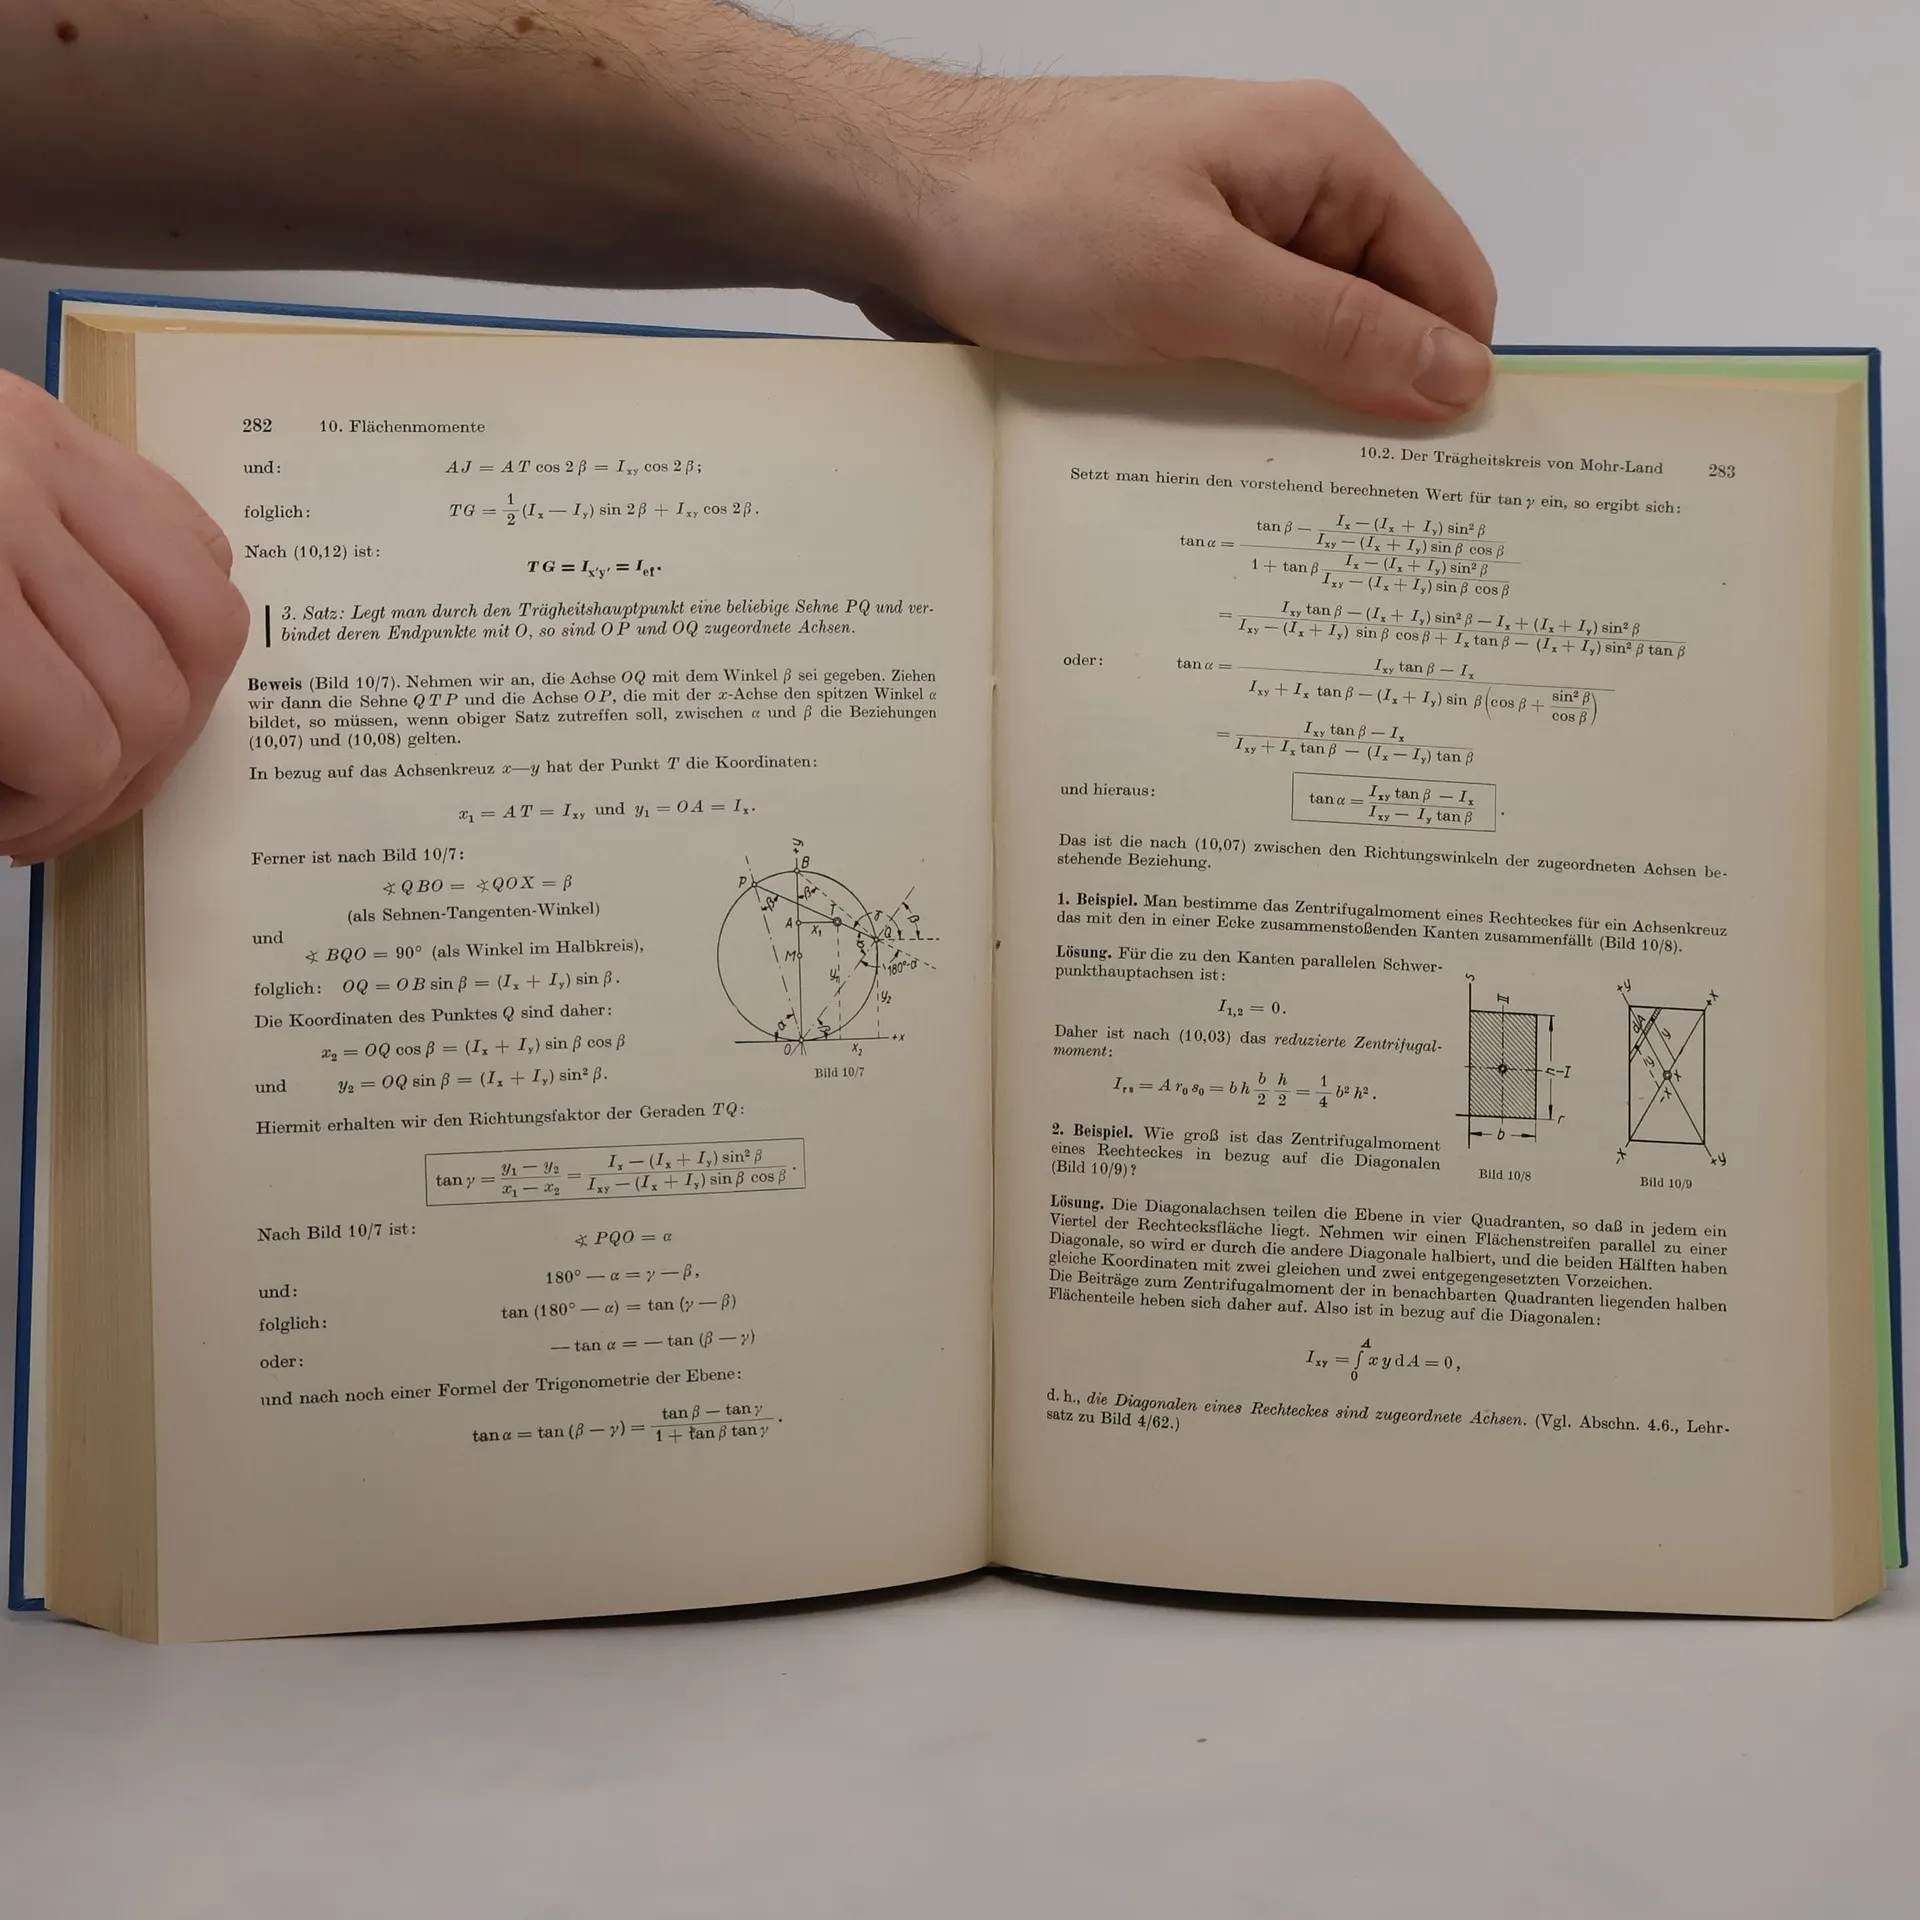 282 10. Flächenmomente
und: AJ = AT cos 2β = I_xy cos 2β;
folglich: TG = 1/2 (I_x — I_y) sin 2β + I_xy cos 2β.
Nach (10,12) ist:
TG = I_x'y' = I_ef.
3. Satz: Legt man durch den Trägheitshauptpunkt eine beliebige Sehne PQ und ver-
bindet deren Endpunkte mit O, so sind OP und OQ zugeordnete Achsen.
Beweis (Bild 10/7). Nehmen wir an, die Achse OQ mit dem Winkel β sei gegeben. Ziehen
wir dann die Sehne QTP und die Achse OP, die mit der x-Achse den spitzen Winkel α
bildet, so müssen, wenn obiger Satz zutreffen soll, zwischen α und β die Beziehungen
(10,07) und (10,08) gelten.
In bezug auf das Achsenkreuz x—y hat der Punkt T die Koordinaten:
x₁ = AT = I_xy und y₁ = OA = I_x.
Ferner ist nach Bild 10/7:
∢ QBO = ∢ QOX = β
(als Sehnen-Tangenten-Winkel)
und
∢ BQO = 90° (als Winkel im Halbkreis),
folglich: OQ = OB sin β = (I_x + I_y) sin β.
Die Koordinaten des Punktes Q sind daher:
x₂ = OQ cos β = (I_x + I_y) sin β cos β
und y₂ = OQ sin β = (I_x + I_y) sin² β.
+y
B
P
β
β
T
γ
β
A
x₁
Q
M
α
180°-α
y₁
y₂
α
β
O
x₂
+x
Bild 10/7
Hiermit erhalten wir den Richtungsfaktor der Geraden TQ:
tan γ = (y₁ — y₂)/(x₁ — x₂) = (I_x — (I_x + I_y) sin² β)/(I_xy — (I_x + I_y) sin β cos β).
Nach Bild 10/7 ist:
∢ PQO = α
und: 180° — α = γ — β,
folglich: tan (180° — α) = tan (γ — β)
oder: — tan α = — tan (β — γ)
und nach noch einer Formel der Trigonometrie der Ebene:
tan α = tan (β — γ) = (tan β — tan γ)/(1 + tan β tan γ).
10.2. Der Trägheitskreis von Mohr-Land 283
Setzt man hierin den vorstehend berechneten Wert für tan γ ein, so ergibt sich:
tan α = (tan β — (I_x — (I_x + I_y) sin² β)/(I_xy — (I_x + I_y) sin β cos β))/(1 + tan β (I_x — (I_x + I_y) sin² β)/(I_xy — (I_x + I_y) sin β cos β))
= (I_xy tan β — (I_x + I_y) sin² β — I_x + (I_x + I_y) sin² β)/(I_xy — (I_x + I_y) sin β cos β + I_x tan β — (I_x + I_y) sin² β tan β)
oder: tan α = (I_xy tan β — I_x)/(I_xy + I_x tan β — (I_x + I_y) sin β (cos β + sin² β/cos β))
= (I_xy tan β — I_x)/(I_xy + I_x tan β — (I_x — I_y) tan β)
und hieraus: tan α = (I_xy tan β — I_x)/(I_xy — I_y tan β).
Das ist die nach (10,07) zwischen den Richtungswinkeln der zugeordneten Achsen be-
stehende Beziehung.
1. Beispiel. Man bestimme das Zentrifugalmoment eines Rechteckes für ein Achsenkreuz
das mit den in einer Ecke zusammenstoßenden Kanten zusammenfällt (Bild 10/8).
Lösung. Für die zu den Kanten parallelen Schwer-
punkthauptachsen ist:
I₁,₂ = 0.
Daher ist nach (10,03) das reduzierte Zentrifugal-
moment:
I_rs = A r₀ s₀ = b h b/2 h/2 = 1/4 b² h².
2. Beispiel. Wie groß ist das Zentrifugalmoment
eines Rechteckes in bezug auf die Diagonalen
(Bild 10/9)?
s
II
h
I
r
b
Bild 10/8
+y
+x
dA
y
x
-x
-x
+y
Bild 10/9
Lösung. Die Diagonalachsen teilen die Ebene in vier Quadranten, so daß in jedem ein
Viertel der Rechtecksfläche liegt. Nehmen wir einen Flächenstreifen parallel zu einer
Diagonale, so wird er durch die andere Diagonale halbiert, und die beiden Hälften haben
gleiche Koordinaten mit zwei gleichen und zwei entgegengesetzten Vorzeichen.
Die Beiträge zum Zentrifugalmoment der in benachbarten Quadranten liegenden halben
Flächenteile heben sich daher auf. Also ist in bezug auf die Diagonalen:
I_xy = ∫₀^A x y dA = 0,
d. h., die Diagonalen eines Rechteckes sind zugeordnete Achsen. (Vgl. Abschn. 4.6., Lehr-
satz zu Bild 4/62.)